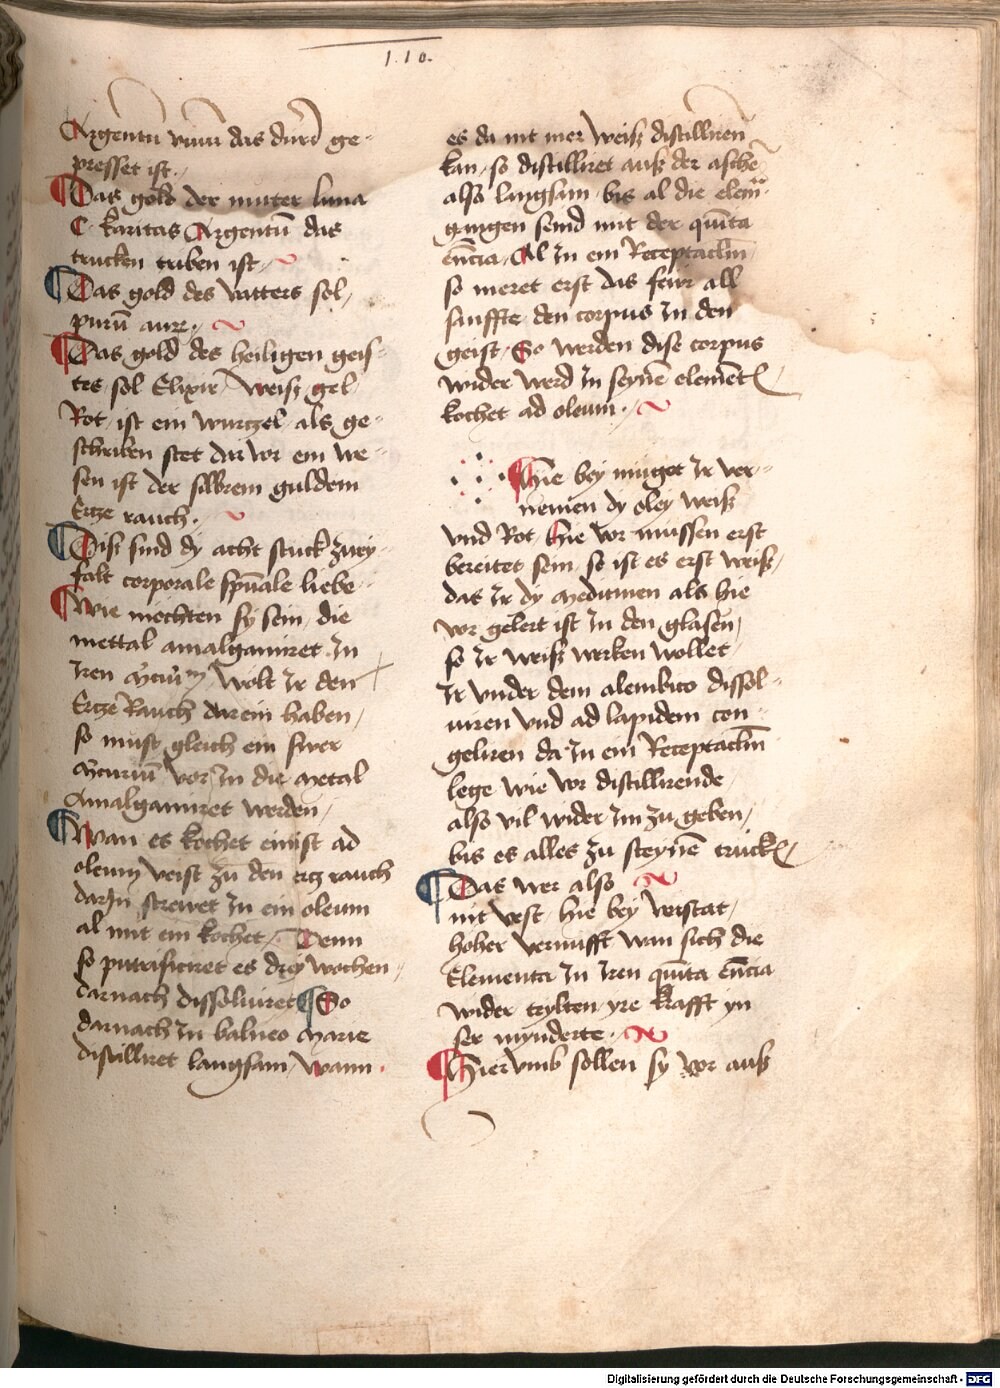 110.
Argentū vivū das durch ge-
presset ist.
Das gold der muter luna
C karitas Argentū das
trucken triben ist
Das gold des vatters sol,
purū aure.
Das gold des heiligen geis-
tes sol Elixir, weiß gel,
Rot, ist ein wurczel, als ge-
schriben stet da vor ein we-
sen ist der silbrem guldem
Ercze rauch.
Diß sind dy acht stuck zwey-
falt corporale sp̄uale liebe
Wie mechten sy sein, die
mettal amalgamiret In
Iren Wolt Ir den
Ercze Rauch darein haben,
so must gleich ein swer
vor In die Metal
Amalgamiret werden,
Wan es kochet einist ad
oleum veist zu den ercz rauch
darJn strewet In ein oleum
al mit ein kochet, Denn
so putrificiret es drey wochen
darnach dissoluiret So
darnach In balneo Marie
distilliret langsam, Wann
es da nit mer weiß distilliren
kan, so distilliret auß der aschē
also langsam, bis al die elem̄
gangen seind mit der quīta
en̄cia, Al In ein Receptaclm̄
so meret erst das feur all
sanffte den corpus In den
geist, So werden dise corpus
wider werd In seynē elemēt
kochet ad oleum.
Hie bey muget Ir ver-
nemen dy oley weiß
vnd Rot, hie vor mussen erst
bereitet sein, so ist es erst weiß,
das Ir dy Medicinen als hie
vor gelert ist In den glasen,
so Ir weiß werken wollet,
Ir vnder dem alembico dissol-
uiren vnd ad lapidem con-
geliren da In ein Receptaclm̄
lege wie vor distillirende,
also vil wider Im zu geben,
bis es alles zu steynē truck
Das wer also
nit vest, hie bey verstat,
hoher vernufft wan sich die
Elementa In Iren quīta en̄cia
wider teylten yre krafft yn
ser mynderte.
Hier vmb sollen sy vor auß
Digitalisierung gefördert durch die Deutsche Forschungsgemeinschaft - DFG